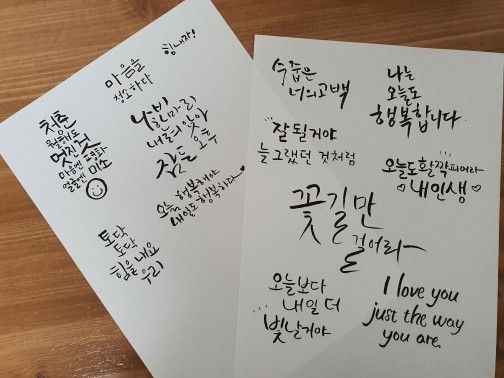 힘내자!
마음을
청소하다
청춘
뭘해도
멋진걸
마음엔 평화
얼굴엔 미소
나비
한마리
내곁에 앉아
잠든 오후
오늘 행복해야
내일도 행복하다
토닥
토닥
힘을내요
우리
수줍은
너의고백
나는
오늘도
행복합니다
잘 될거야
늘 그랬던 것처럼
오늘도활짝피어라
내인생
꽃길만
걸어라
오늘보다
내일 더
빛날거야
I love you
just the way
you are.